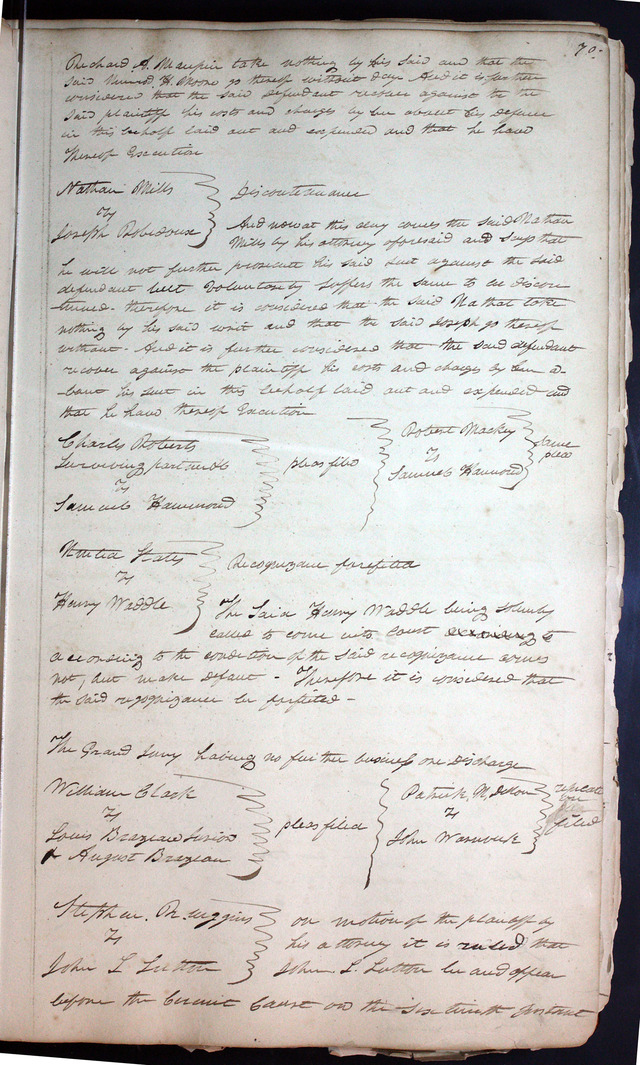 70.
Richard A. Maupin take nothing by his said and that the
said Nimrod H. Moore go thereof without day And it is further
considered that the said defendant recover against the the
said plaintiff his costs and charges by him about his defence
in this behalf laid out and expended and that he have
thereof Execution
Nathan Mills
vs
Joseph Robidoux
Discontinuance
And now at this day comes the said Nathan
Mills by his attorney aforesaid and says that
he will not further prosecute his said suit against the said
defendant but Voluntarily Suffers the same to be discon
tinued. therefore it is considered that the said Nathat take
nothing by his said writ and that the said Joseph go thereof
without. And it is further considered that the said defendant
recover against the plaintiff his costs and charges by him a-
bout his suit in this behalf laid out and expended and
that he have thereof Execution
Charles Roberts
Surviving partner &c
vs
Samuel Hammond
pleas filed
Robert Mackey
vs
Samuel Hammond
Same
pleas
United States
vs
Henry Waddle
Recognizance forefited
The Said Henry Waddle being solemnly
called to come into Court to
according to the condition of the said recognizance comes
not, but make defaut - Therefore it is considered that
the said recognizance be forfited -
The Grand Jury having no further business are discharge
William Clark
vs
Louis Brazeau Senior
& August Brazeau
pleas filed
Patrick M. Dillon
vs
John Warnock
replicati
on
filed
Stephen R. Wiggins
vs
John L Sutton
on motion of the plaintiff by
his attorney it is ruled that
John L. Sutton be and appear
before the Circuit Court on the sixteenth instant